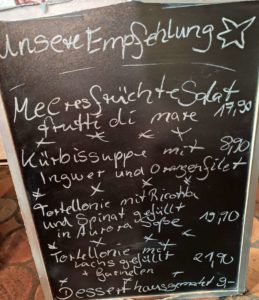 Unsere Empfehlung
MeeresfrüchteSalat
frutti di mare 17,90
Kürbissuppe mit 8,90
Ingwer und Orangenfilet
Tortellonie mit Ricotta
und Spinat gefüllt
in Aurora Soße 19,90
Tortellonie mit
Lachs gefüllt 21,90
+ Garnelen
Dessert hausgemacht 9-